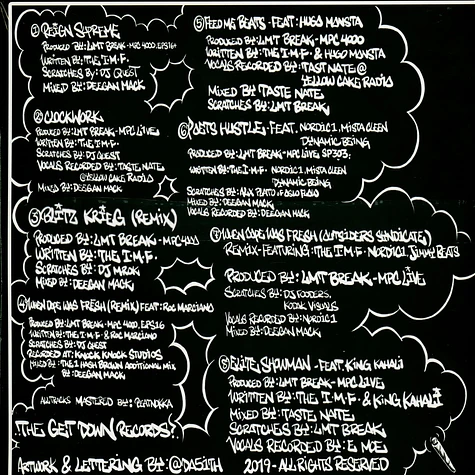 ① REIGN SUPREME
PRODUCED BY: LMT BREAK - MPC 4000, EPS16+
WRITTEN BY: THE I.M.F.
SCRATCHES BY: DJ QUEST
MIXED BY: DEEGAN MACK
② CLOCKWORK
PRODUCED BY: LMT BREAK - MPC LIVE
WRITTEN BY: THE I.M.F.
SCRATCHES BY: DJ QUEST
VOCALS RECORDED BY: TASTE NATE
@YELLOW CAKE RADIO
MIXED BY: DEEGAN MACK
③ BLITZ KRIEG (REMIX)
PRODUCED BY: LMT BREAK - MPC 4000
WRITTEN BY: THE I.M.F.
SCRATCHES BY: DJ MROK
MIXED BY: DEEGAN MACK
④ WHEN DOPE WAS FRESH (REMIX) FEAT: ROC MARCIANO
PRODUCED BY: LMT BREAK - MPC 4000, EPS16
WRITTEN BY: THE I.M.F. & ROC MARCIANO
SCRATCHES BY: DJ QUEST
RECORDED AT: KNOCK KNOCK STUDIOS
MIXED BY: THE 1 HASH BROWN ADDITIONAL MIX
BY: DEEGAN MACK
ALL TRACKS MASTERED BY: BEATNIKKA
THE GET DOWN RECORDS
ARTWORK & LETTERING BY: @DA51TH
⑤ FEED MG BEATS - FEAT: HUGO MONSTA
PRODUCED BY: LMT BREAK - MPC 4000
WRITTEN BY: THE I.M.F. & HUGO MONSTA
VOCALS RECORDED BY: TAST NATE @
YELLOW CAKE RADIO
MIXED BY: TASTE NATE
SCRATCHES BY: LMT BREAK
⑥ POETS HUSTLE - FEAT. NORDIC1, MISTA CLEEN
DYNAMIC BEING
PRODUCED BY: LMT BREAK - MPC LIVE SP303,
WRITTEN BY: THE I.M.F. NORDIC1, MISTA CLEEN
DYNAMIC BEING
SCRATCHES BY: ALX PLATO
MIXED BY: DEEGAN MACK
VOCALS RECORDED BY: DEEGAN MACK
⑦ WHEN DOPE WAS FRESH (OUTSIDERS SYNDICATE)
REMIX - FEATURING: THE I.M.F. NORDIC1, JIMMY BEATS
PRODUCED BY: LMT BREAK - MPC LIVE
SCRATCHES BY: DJ FODDERS,
KODAK VISUALS
VOCALS RECORDED BY: NORDIC1
MIXED BY: DEEGAN MACK
⑧ ELITE SHOWMAN - FEAT. KING KAHALI
PRODUCED BY: LMT BREAK - MPC LIVE
WRITTEN BY: THE I.M.F. & KING KAHALI
MIXED BY: TASTE NATE
SCRATCHES BY: LMT BREAK
VOCALS RECORDED BY: E MOE
2019 - ALL RIGHTS RESERVED